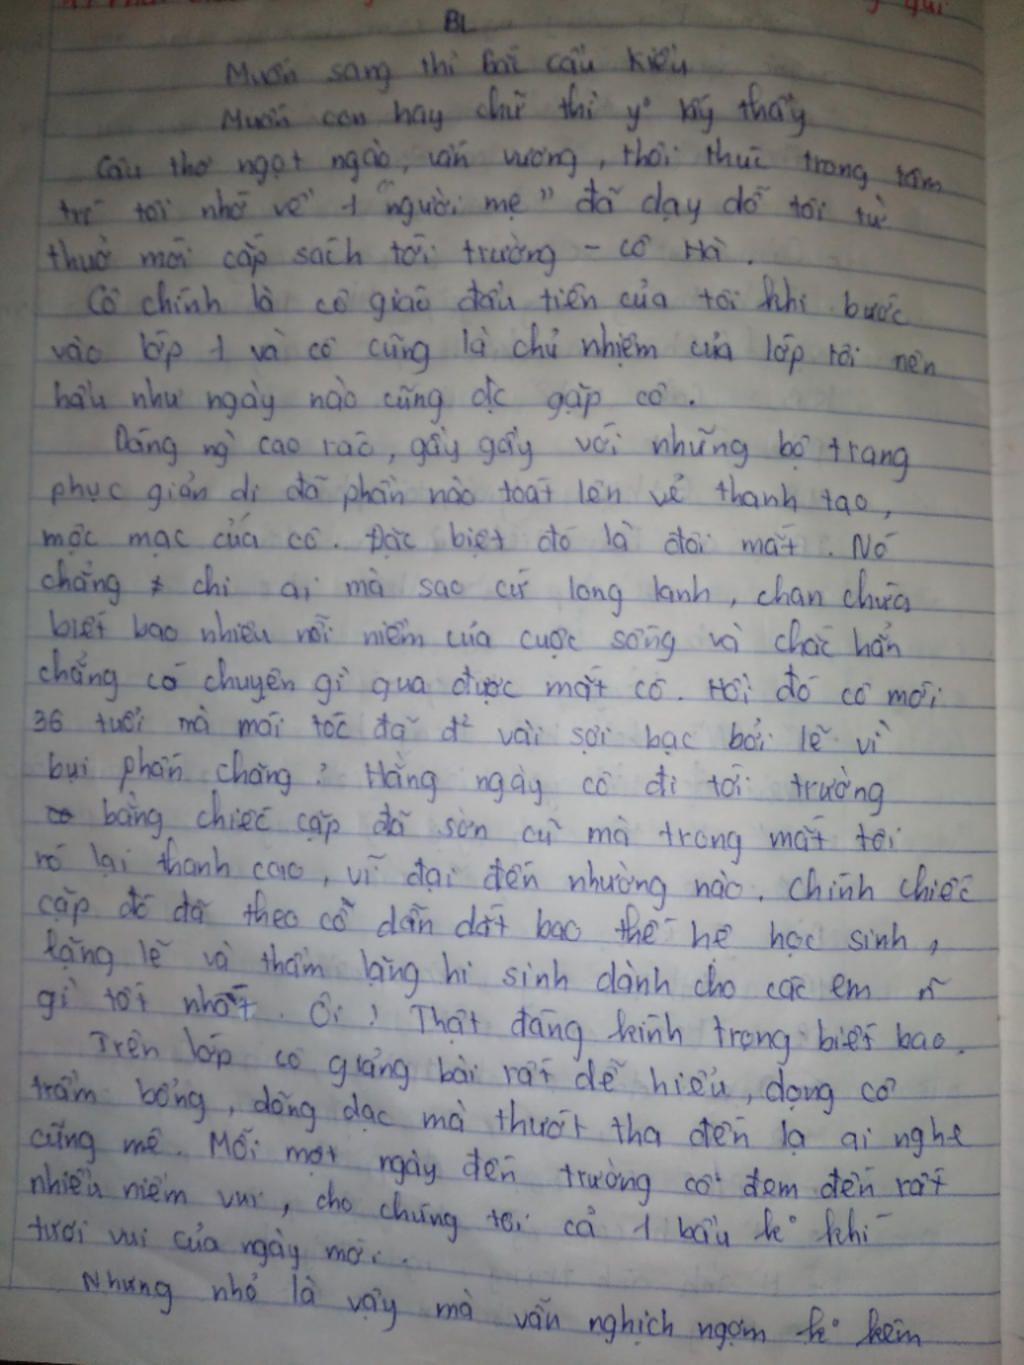 BL
Muốn sang thì bắc cầu kiều
Muốn con hay chữ thì yº lấy thầy
Câu thơ ngọt ngào, vấn vương, thôi thúc trong tâm
trí tôi nhớ về 1 "người mẹ" đã dạy dỗ tôi từ
thuở mới cắp sách tới trường - cô Hà.
Cô chính là cô giáo đầu tiên của tôi khi bước
vào lớp 1 và cô cũng là chủ nhiệm của lớp tôi nên
hầu như ngày nào cũng đc gặp cô.
Dáng ng` cao ráo, gầy gầy với những bộ trang
phục giản dị đã phần nào toát lên vẻ thanh tạo,
mộc mạc của cô. Đặc biệt đó là đôi mắt. Nó
chẳng chỉ ai mà sao cứ long lanh, chan chứa
biết bao nhiêu nỗi niềm của cuộc sống và chắc hẳn
chẳng có chuyện gì qua được mắt cô. Hồi đó cô mới
36 tuổi mà mái tóc đã đ² vài sợi bạc bởi lẽ vì
bụi phấn chăng? Hằng ngày cô đi tới trường
bằng chiếc cặp đã sờn cũ mà trong mắt tôi
nó lại thanh cao, vĩ đại đến nhường nào. Chính chiếc
cặp đó đã theo cô dẫn dắt bao thế hệ học sinh,
lặng lẽ và thầm lặng hi sinh dành cho các em n~
gì tốt nhất. Ôi! Thật đáng kính trọng biết bao.
Trên lớp cô giảng bài rất dễ hiểu, dọng cô
trầm bổng, dõng dạc mà thướt tha đến lạ ai nghe
cũng mê. Mỗi một ngày đến trường cô đem đến rất
nhiều niềm vui, cho chúng tôi cả 1 bầu kº khí
tươi vui của ngày mới.
Nhưng nhỏ là vậy mà vẫn nghịch ngợm kº kém